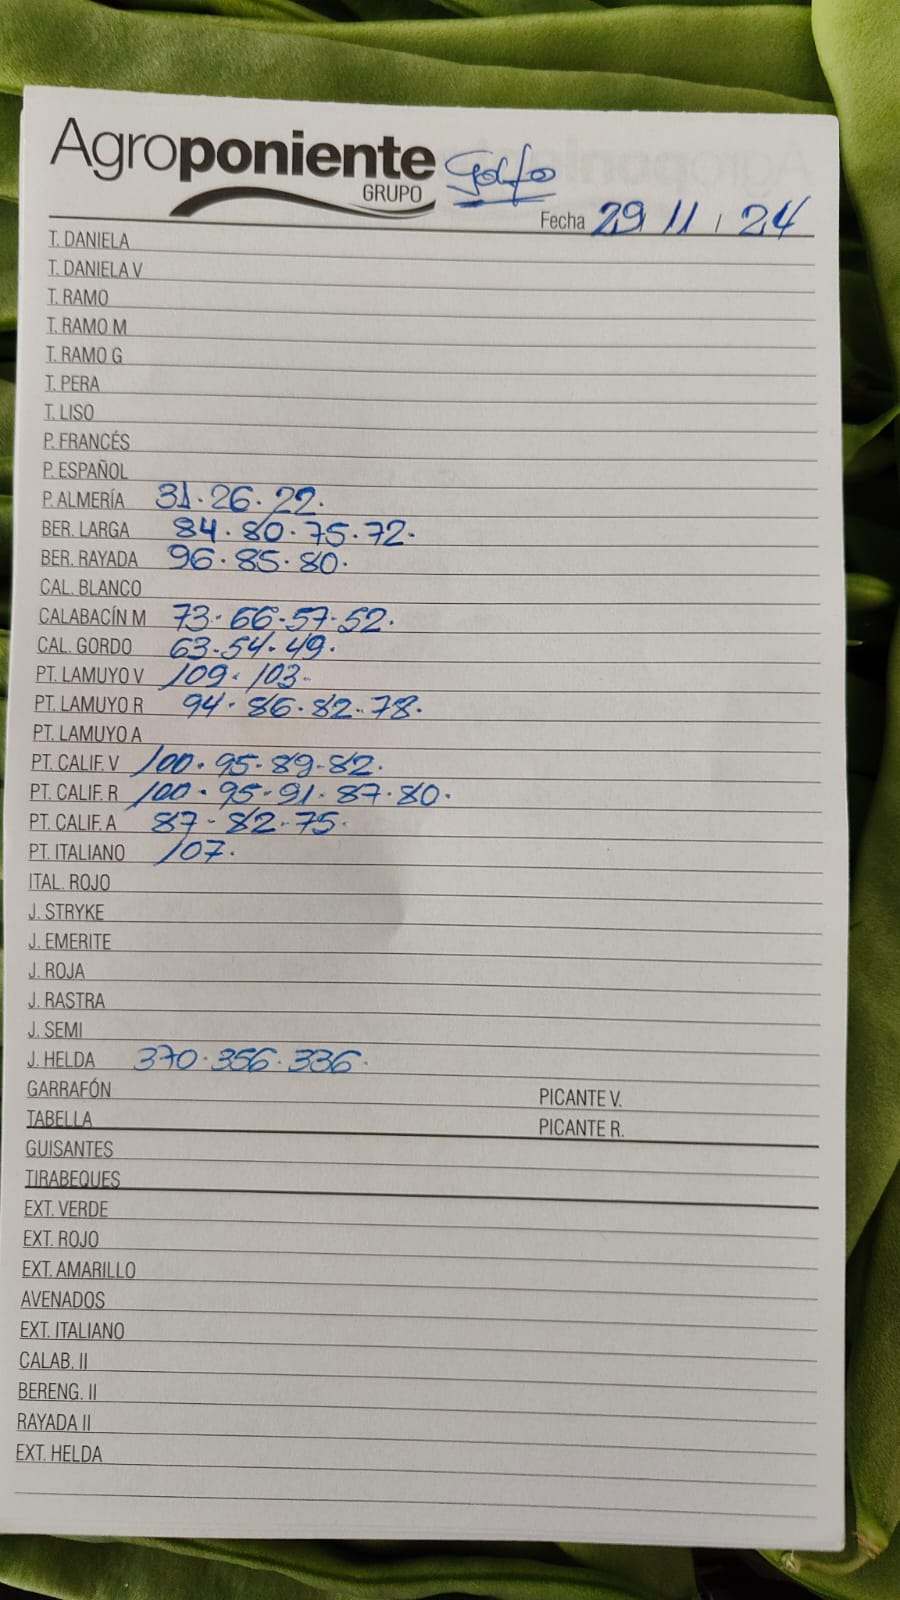 Agroponiente Golfo
GRUPO
Fecha 29 / 11 / 24
T. DANIELA
T. DANIELA V
T. RAMO
T. RAMO M
T. RAMO G
T. PERA
T. LISO
P. FRANCÉS
P. ESPAÑOL
P. ALMERÍA 31. 26. 22.
BER. LARGA 84. 80. 75. 72.
BER. RAYADA 96. 85. 80.
CAL. BLANCO
CALABACÍN M 73. 66. 57. 52.
CAL. GORDO 63. 54. 49.
PT. LAMUYO V 109. 103.
PT. LAMUYO R 94. 86. 82. 78.
PT. LAMUYO A
PT. CALIF. V 100. 95. 89. 82.
PT. CALIF. R 100. 95. 91. 87. 80.
PT. CALIF. A 87. 82. 75.
PT. ITALIANO 107.
ITAL. ROJO
J. STRYKE
J. EMERITE
J. ROJA
J. RASTRA
J. SEMI
J. HELDA 370. 356. 336.
GARRAFÓN PICANTE V.
TABELLA PICANTE R.
GUISANTES
TIRABEQUES
EXT. VERDE
EXT. ROJO
EXT. AMARILLO
AVENADOS
EXT. ITALIANO
CALAB. II
BERENG. II
RAYADA II
EXT. HELDA